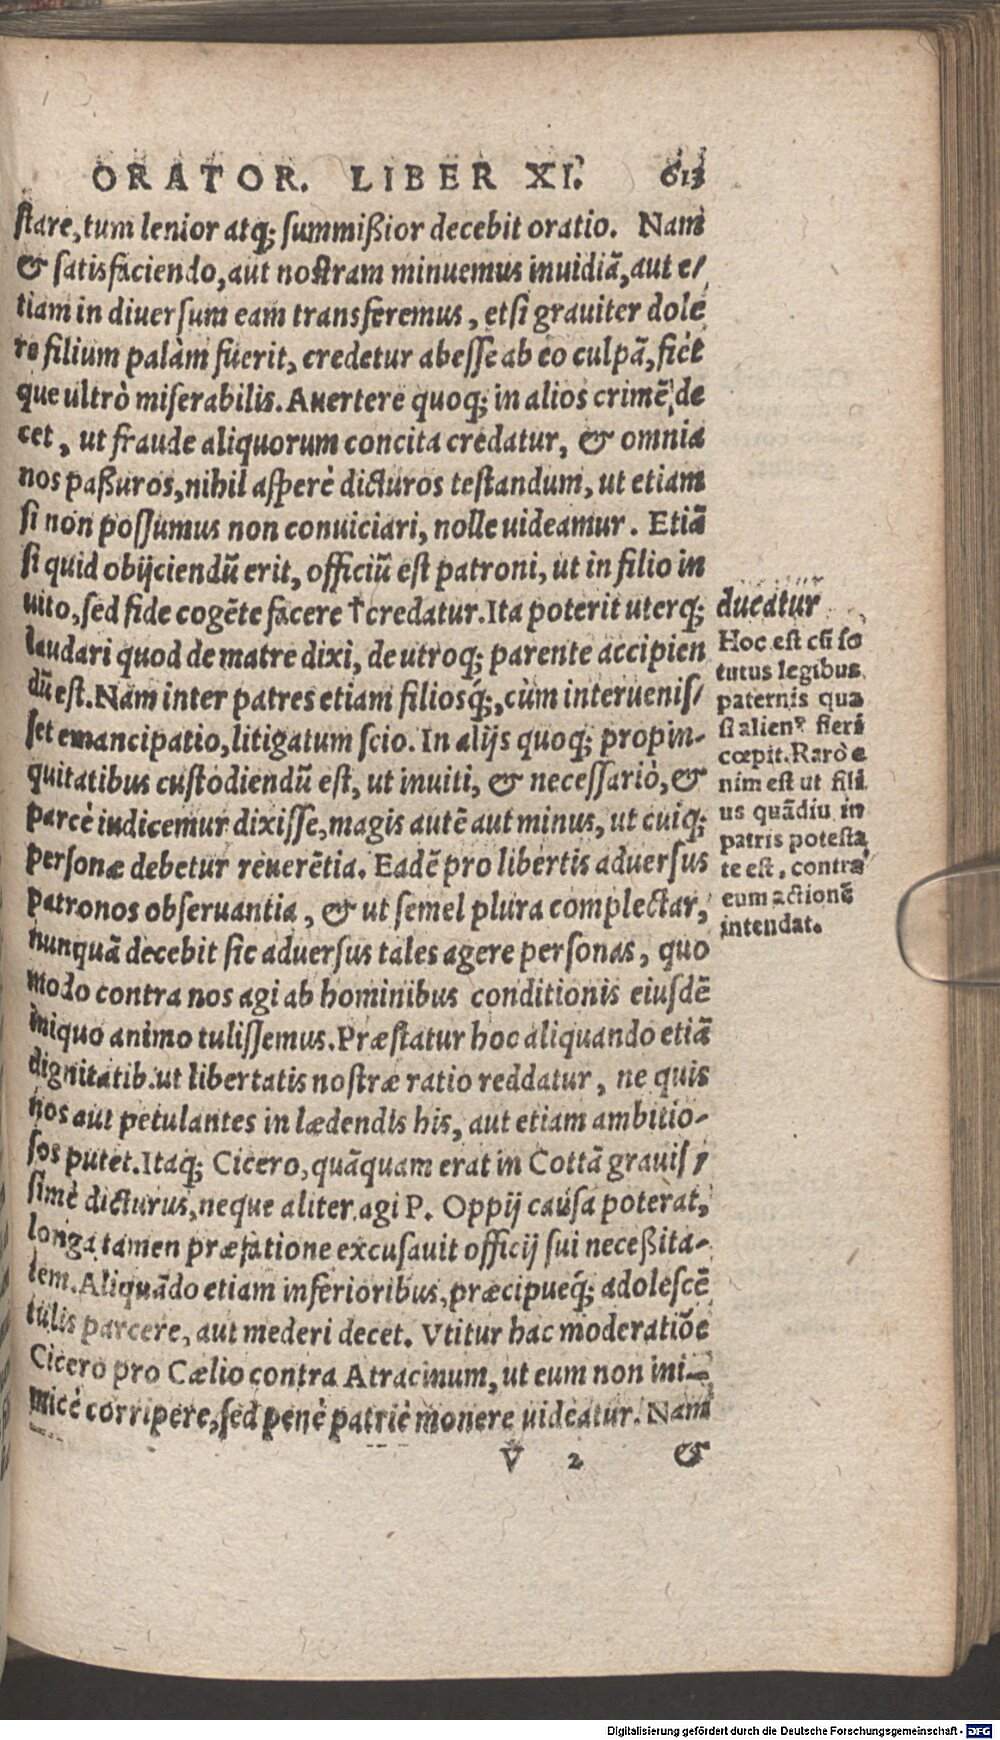 ORATOR. LIBER XI. 613
ſtare, tum lenior atq; ſummißior decebit oratio. Nam
& ſatisfaciendo, aut noſtram minuemus inuidiã, aut e/
tiam in diuerſum eam transferemus, etſi grauiter dole
re filium palàm fuerit, credetur abeſſe ab eo culpã, fiét
que ultrò miſerabilis. Auertere quoq; in alios crimẽ de
cet, ut fraude aliquorum concita credatur, & omnia
nos paßuros, nihil aſperè dicturos teſtandum, ut etiam
ſi non poſſumus non conuiciari, nolle uideamur. Etiã
ſi quid obijciendũ erit, officiũ eſt patroni, ut in filio in
uito, ſed fide cogẽte facere †credatur. Ita poterit uterq;
laudari quod de matre dixi, de utroq; parente accipien
dũ eſt. Nam inter patres etiam filiosq́;, cùm interueniſ/
ſet emancipatio, litigatum ſcio. In alijs quoq; propin-
quitatibus cuſtodiendũ eſt, ut inuiti, & neceſſariò, &
parcè iudicemur dixiſſe, magis autẽ aut minus, ut cuiq;
perſonæ debetur reuerẽtia. Eadẽ pro libertis aduerſus
patronos obſeruantia, & ut ſemel plura complectar,
nunquã decebit ſic aduerſus tales agere perſonas, quo
modo contra nos agi ab hominibus conditionis eiuſdẽ
iniquo animo tuliſſemus. Præſtatur hoc aliquando etiã
dignitatib. ut libertatis noſtræ ratio reddatur, ne quis
nos aut petulantes in lædendis his, aut etiam ambitio-
ſos putet. Itaq; Cicero, quãquam erat in Cottã grauiſ/
ſimè dicturus, neque aliter agi P. Oppij cauſa poterat,
longa tamen præfatione excuſauit officij ſui neceßita-
tem. Aliquãdo etiam inferioribus, præcipueq́; adoleſcẽ
tulis parcere, aut mederi decet. Vtitur hac moderatiõe
Cicero pro Cælio contra Atracinum, ut eum non ini-
micè corripere, ſed penè patriè monere uideatur. Nam
V 2 &
ducatur
Hoc eſt cũ ſo
tutus legibus
paternis qua
ſi alienꝰ fieri
cœpit. Rarò e
nim eſt ut fili
us quãdiu in
patris poteſta
te eſt, contra
eum actionẽ
intendat.
Digitalisierung gefördert durch die Deutsche Forschungsgemeinschaft - DFG